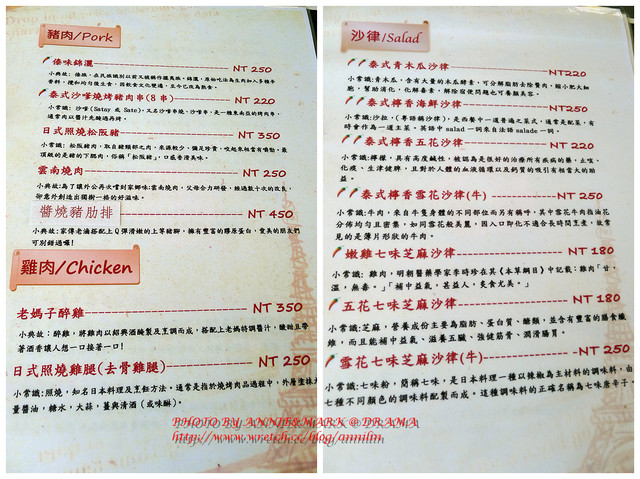 豬肉/Pork
傣味錦灑 NT 250
泰式沙爹燒烤豬肉串(8串) NT 220
小常識: 沙爹(Satay 或 Sate),又名沙嗲串燒,沙嗲串,是一種東南亞的烤肉串,
通常肉以醬汁先醃過再烤。
日式照燒松阪豬 NT 350
小常識: 松阪豬肉,取自豬頸部之肉,來源較少,彌足珍貴,吃起來相當有嚼勁,最
頂級的是豬的下腮肉,俗稱「松阪豬」,口感香滑美味。
雲南燒肉 NT 250
小典故:為了讓外公再次嚐到家鄉味:雲南燒肉,父母合力研發,經過數十次的改良,
卻意外創造出獨樹一格的好滋味。
醬燒豬肋排 NT 450
小典故:家傳老滷搭配上Q彈滑嫩的上等豬腳,擁有豐富的膠原蛋白,愛美的朋友們
可別錯過喔!
雞肉/Chicken
老媽子醉雞 NT 350
小典故:醉雞,將雞肉以紹興酒醃製及烹調而成,搭配上老媽特調醬汁,酸甜且帶
著酒香讓人想一口接著一口!
日式照燒雞腿(去骨雞腿) NT 250
小常識:照燒,知名日本料理及烹飪方法,通常是指於燒烤肉品過程中,外層塗抹大
量醬油,糖水,大蒜,薑與清酒(或味醂)。
沙律/Salad
泰式青木瓜沙律 NT220
小常識:青木瓜,含有大量的木瓜酵素,可分解脂肪去除贅肉,縮小肥大細
胞,幫助消化、化解毒素,解除宿便問題也可養顏美容。
泰式檸香海鮮沙律 NT250
小常識:沙拉,(粵語稱沙律),是西餐中一道普遍之菜式,通常是配菜,有
時會作為一道主菜。英語中 salad 一詞來自法語 salade 一詞。
泰式檸香五花沙律 NT 220
小常識:檸檬,具有高度鹹性,被認為是很好的治療所有疾病的藥,止咳、
化痰、生津健脾,且對於人體的血液循環以及鈣質的吸引有相當大的助
益。
泰式檸香雪花沙律(牛) NT 250
小常識:牛肉,來自牛隻身體的不同部位而另有稱呼,其中雪花牛肉指油花
分佈均勻且密集,如同雪花般美麗,因入口即化不適合長時間烹煮,故常
見的是薄片形狀的牛肉。
嫩雞七味芝麻沙律 NT 180
小常識: 雞肉,明朝醫藥學家李時珍在其《本草綱目》中記載:雞肉「甘,
溫,無毒。」「補中益氣,甚益人,炙食尤美。」
五花七味芝麻沙律 NT 180
小常識:芝麻,營養成份主要為脂肪、蛋白質、醣類,並含有豐富的膳食纖
維,而且能補中益氣、滋養五臟、強健筋骨、潤滑腸胃。
雪花七味芝麻沙律(牛) NT 250
小常識:七味粉,簡稱七味,是日本料理一種以辣椒為主材料的調味料,由
七種不同顏色的調味料配製而成。這種調味料的正確名稱為七味唐辛子。
PHOTO BY ANNIE&MARK @ DRAMA
http://www.wretch.cc/blog/annilin